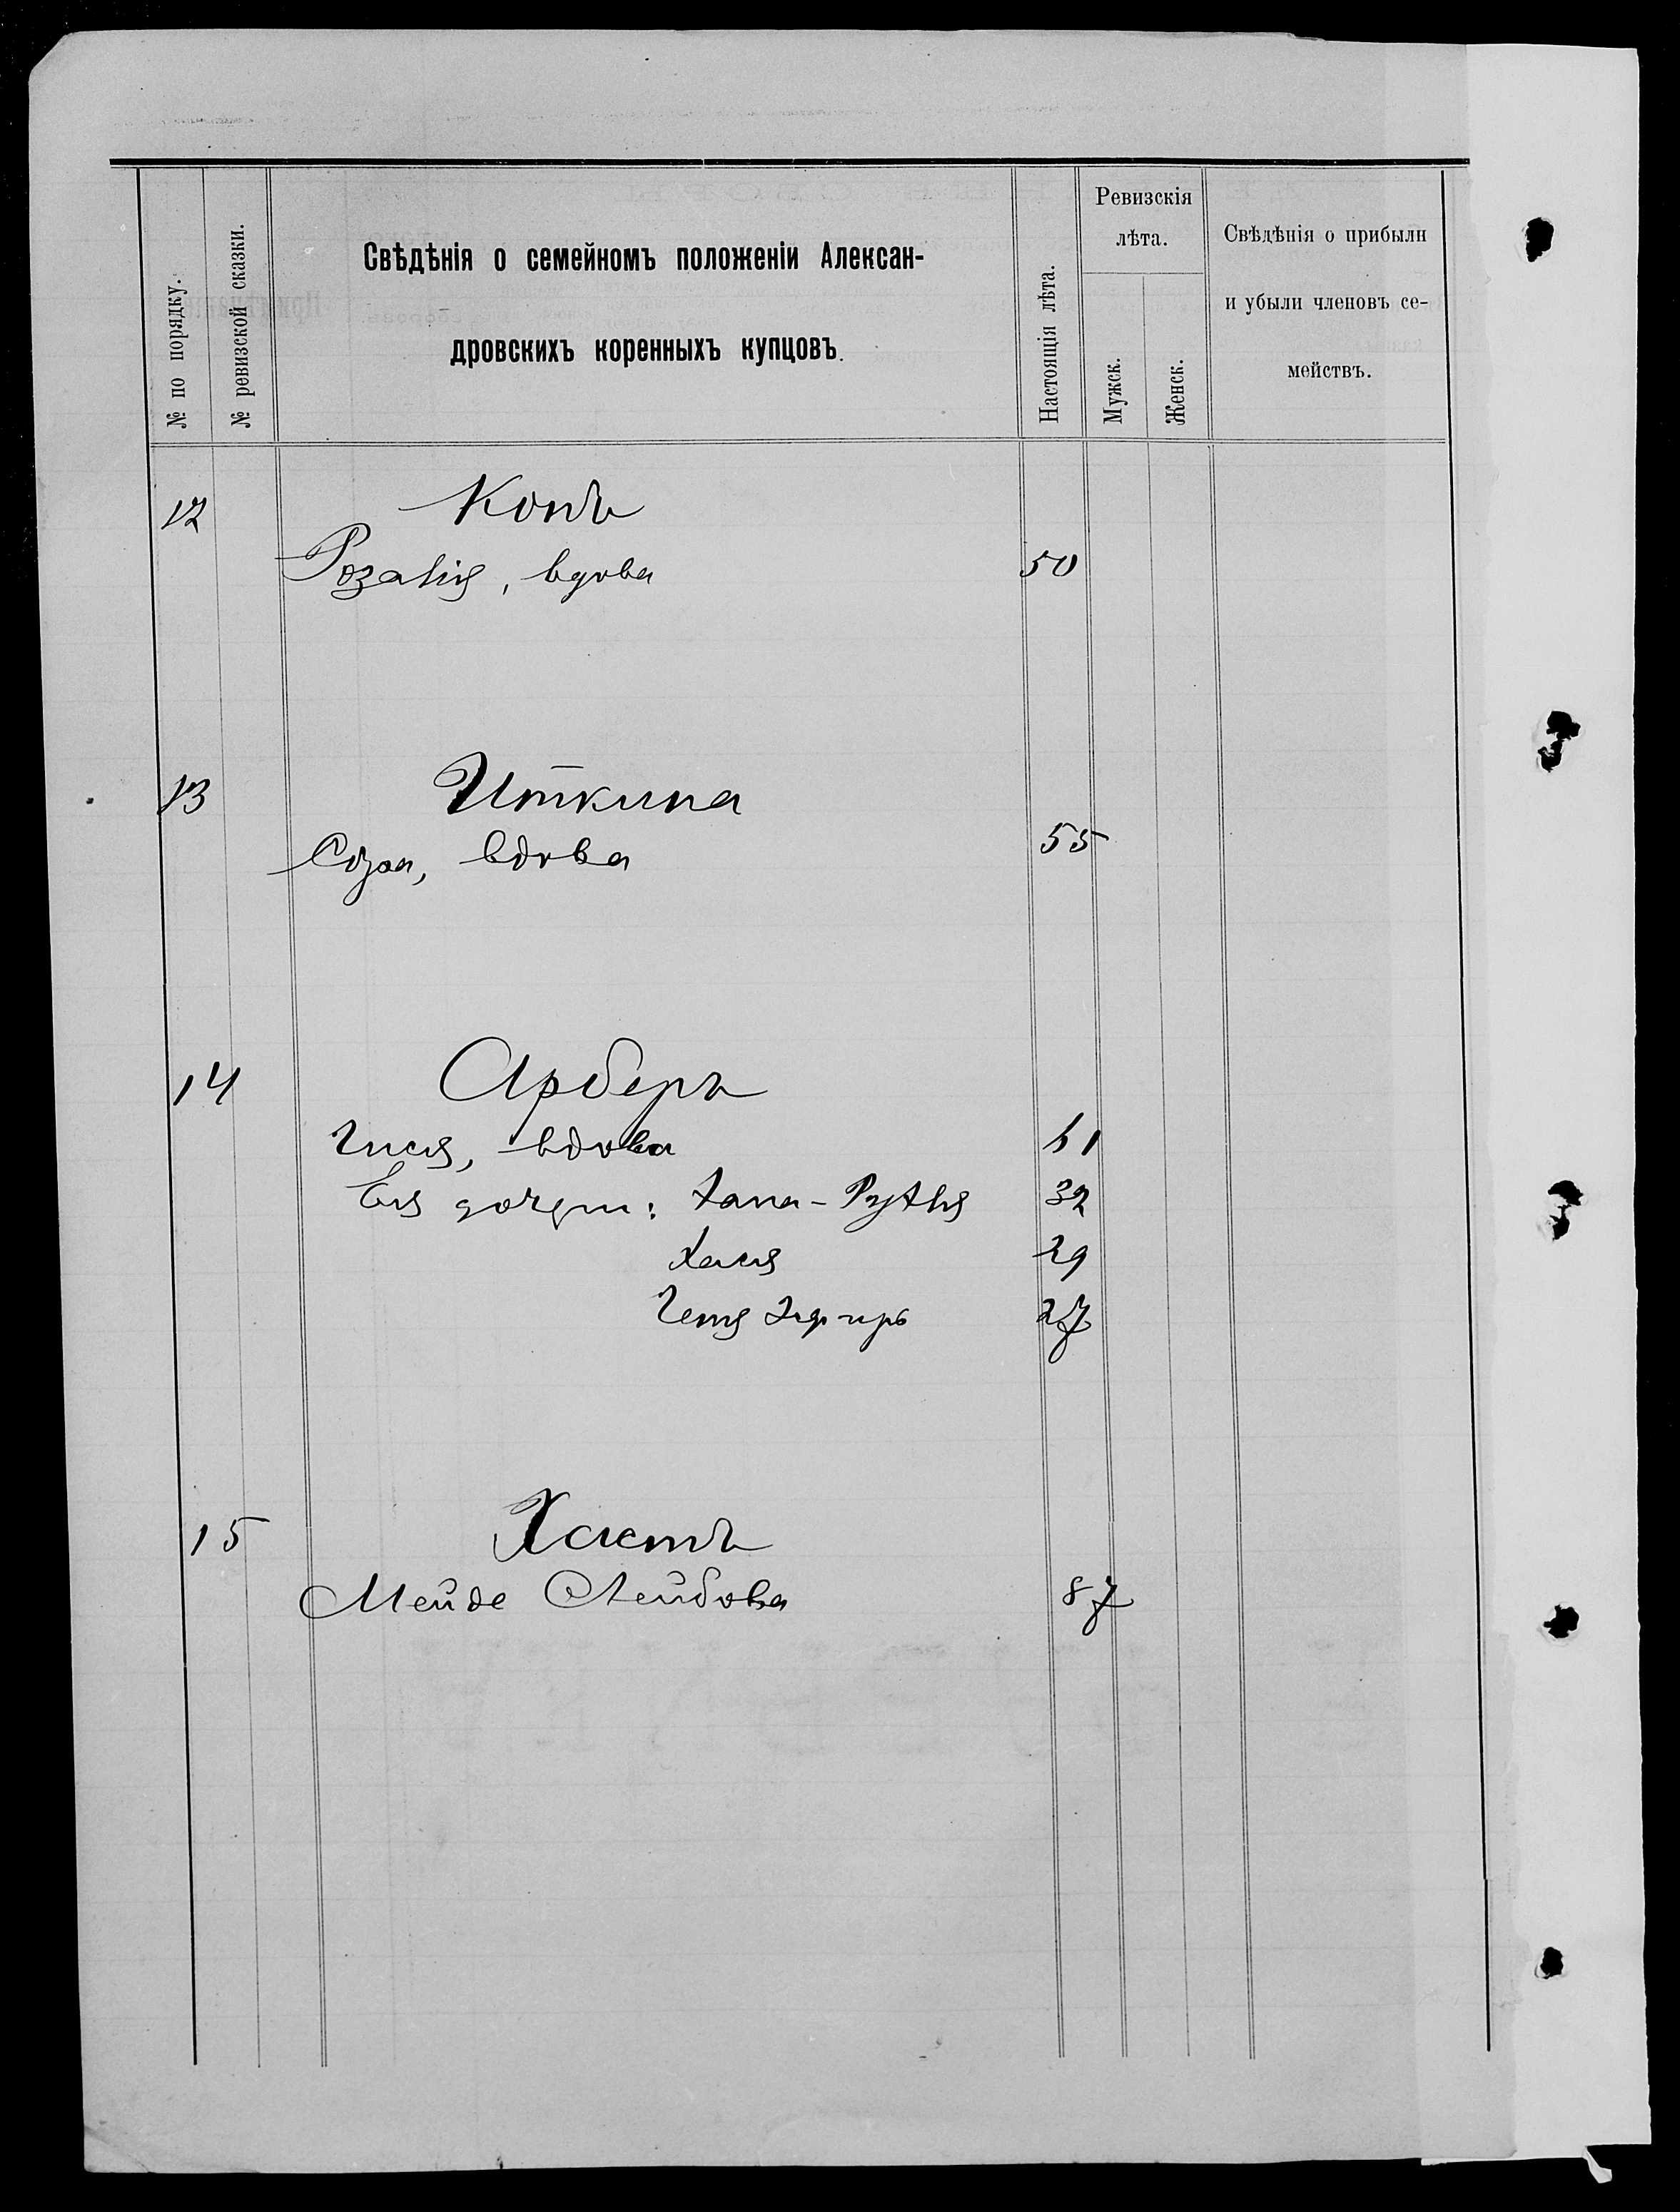 № по порядку.
№ ревизской сказки.
Свѣдѣнія о семейномъ положеніи Алексан-
дровскихъ коренныхъ купцовъ.
Настоящія лѣта.
Ревизскія
лѣта.
Мужск.
Женск.
Свѣдѣнія о прибыли
и убыли членовъ се-
мействъ.
12 Конъ
Розалія, вдова 50
13 Иткина
вдова 55
14 Арберъ
Гися, вдова 61
Ея дочери: Хана- 32
Хася 29
27
15 Хаетъ
Мейде Лейбова 87